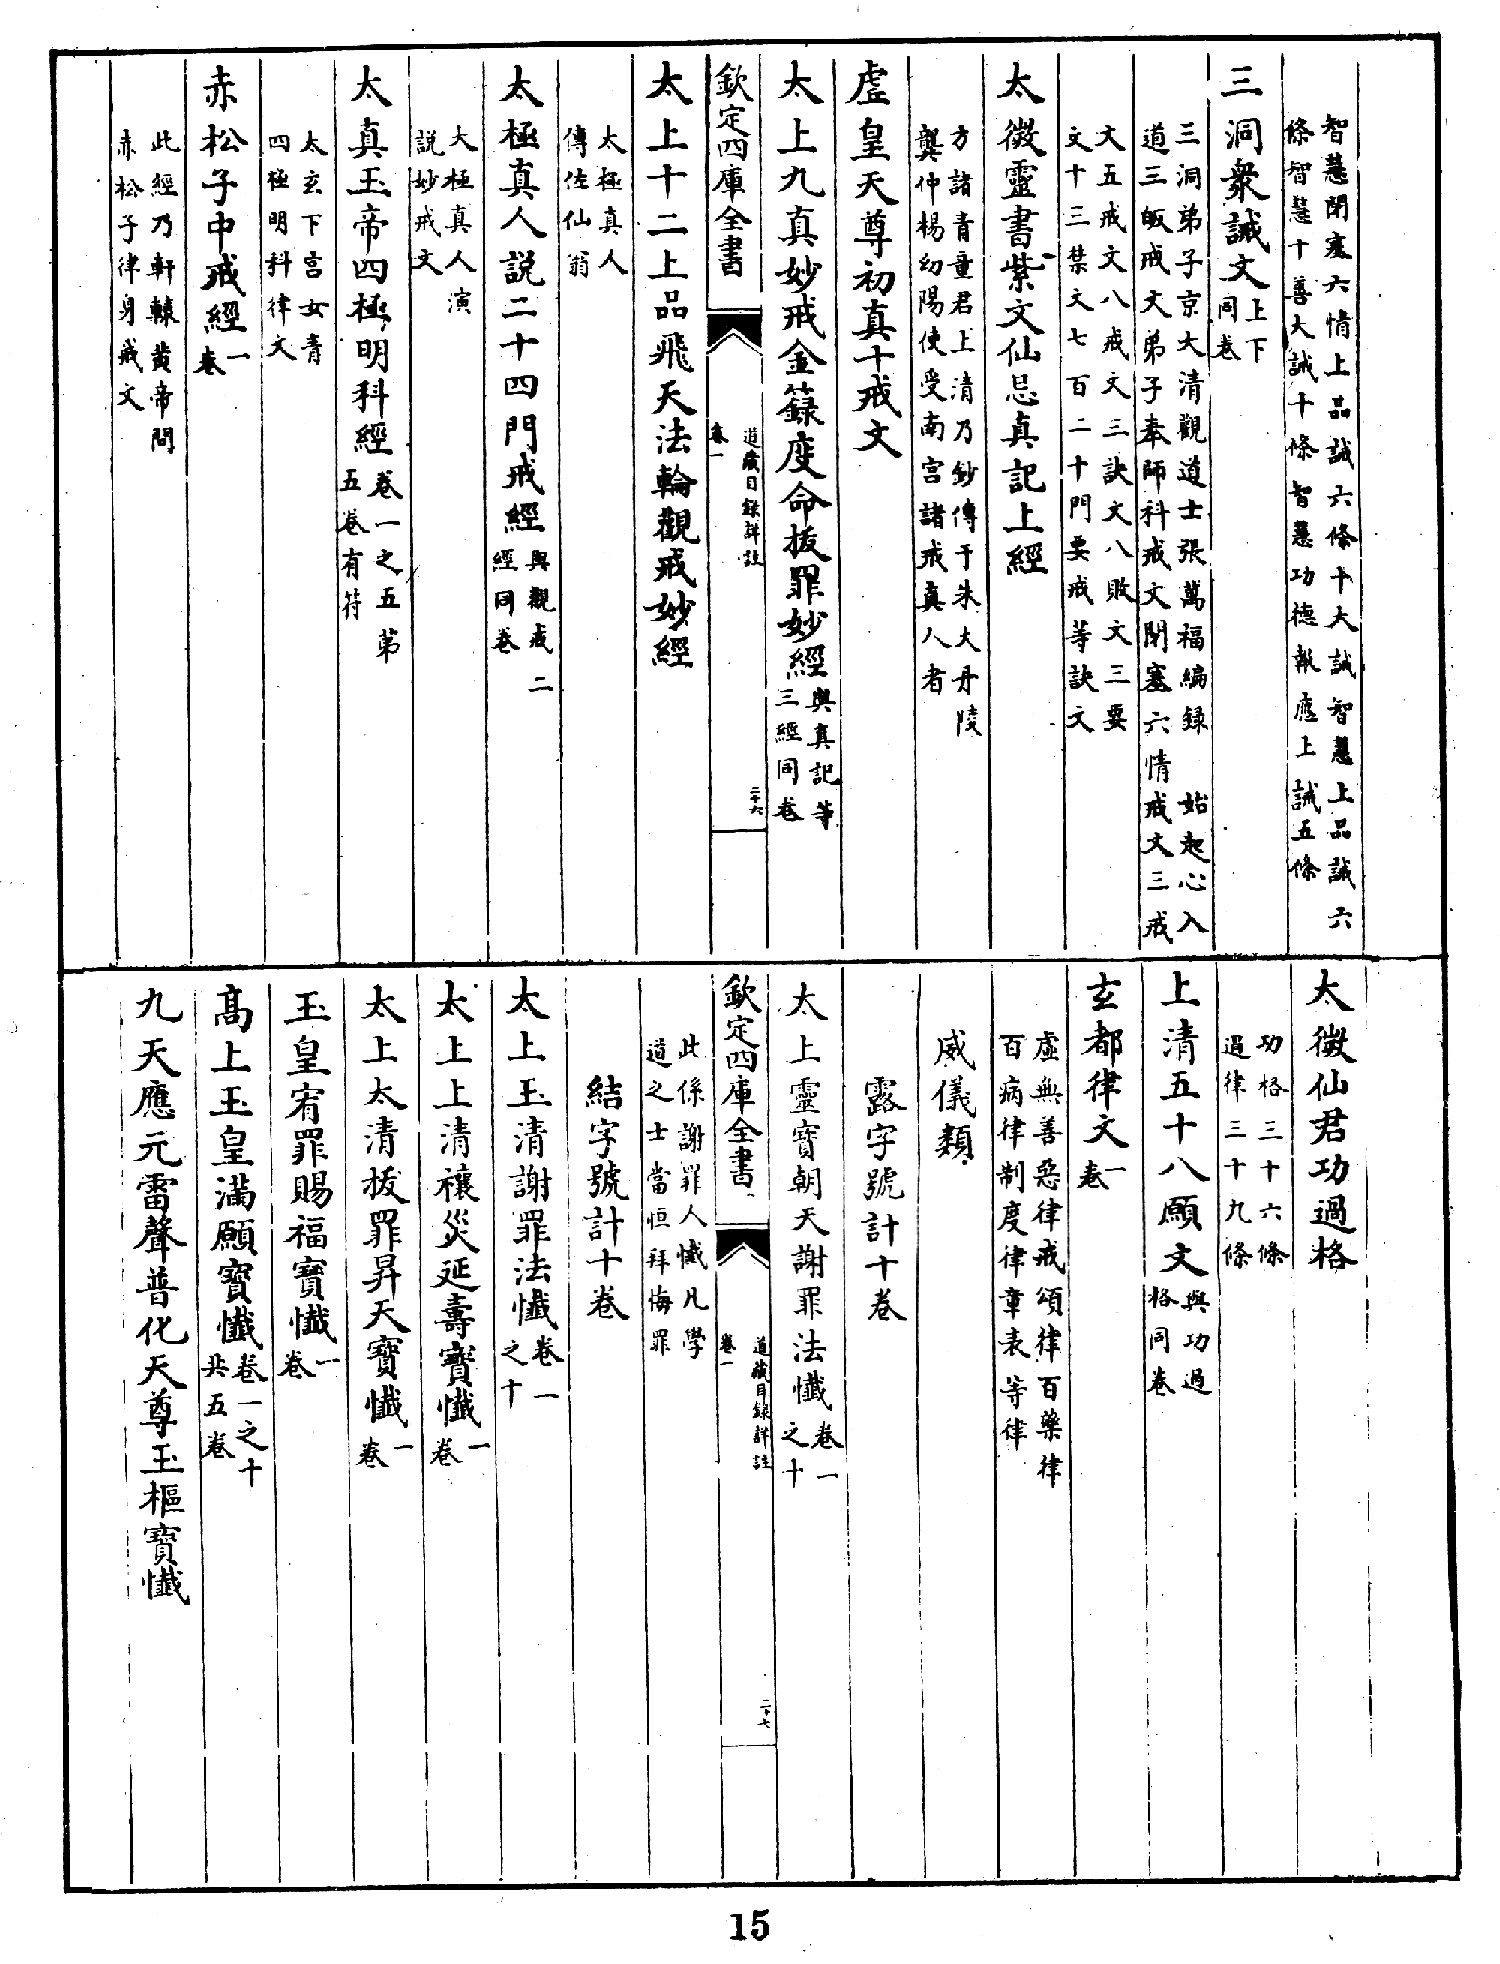 智慧閉塞六情上品誡六條十大誡智慧上品誡六
條智慧十善大誡十條智慧功德報應上誡五條
三洞衆誡文上下同卷
三洞弟子京大清觀道士張萬福編録 始起心入
道三皈戒文弟子奉師科戒文閉塞六情戒文三戒
文五戒文八戒文三訣文八敗文三要
文十三禁文七百二十門要戒等訣文
太微靈書紫文仙忌真記上經
方諸青童君上清乃鈔傳于朱大丹陵
龔仲楊幼陽使受南宮諸戒真人者
虛皇天尊初真十戒文
太上九真妙戒金籙度命拔罪妙經與真記等三經同卷
欽定四庫全書
道藏目録詳註
卷一
二十六
太上十二上品飛天法輪觀戒妙經
太極真人
傳佐仙翁
太極真人説二十四門戒經與觀戒二經同卷
太極真人演
説妙戒文
太真玉帝四極明科經卷一之五第五卷有符
太玄下宮女青
四極明科律文
赤松子中戒經一卷
此經乃軒轅黃帝問
赤松子律身戒文
太微仙君功過格
功格三十六條
過律三十九條
上清五十八願文與功過格同卷
玄都律文一卷
虛無善惡律戒頌律百藥律
百病律制度律章表等律
威儀類
露字號計十卷
太上靈寶朝天謝罪法懺卷一之十
欽定四庫全書
道藏目録詳註
卷一
二十七
此係謝罪人懺凡學
道之士當恒拜悔罪
結字號計十卷
太上玉清謝罪法懺卷一之十
太上上清禳災延壽寶懺一卷
太上太清拔罪昇天寶懺一卷
玉皇宥罪賜福寶懺一卷
高上玉皇滿願寶懺卷一之十共五卷
九天應元雷聲普化天尊玉樞寶懺
15